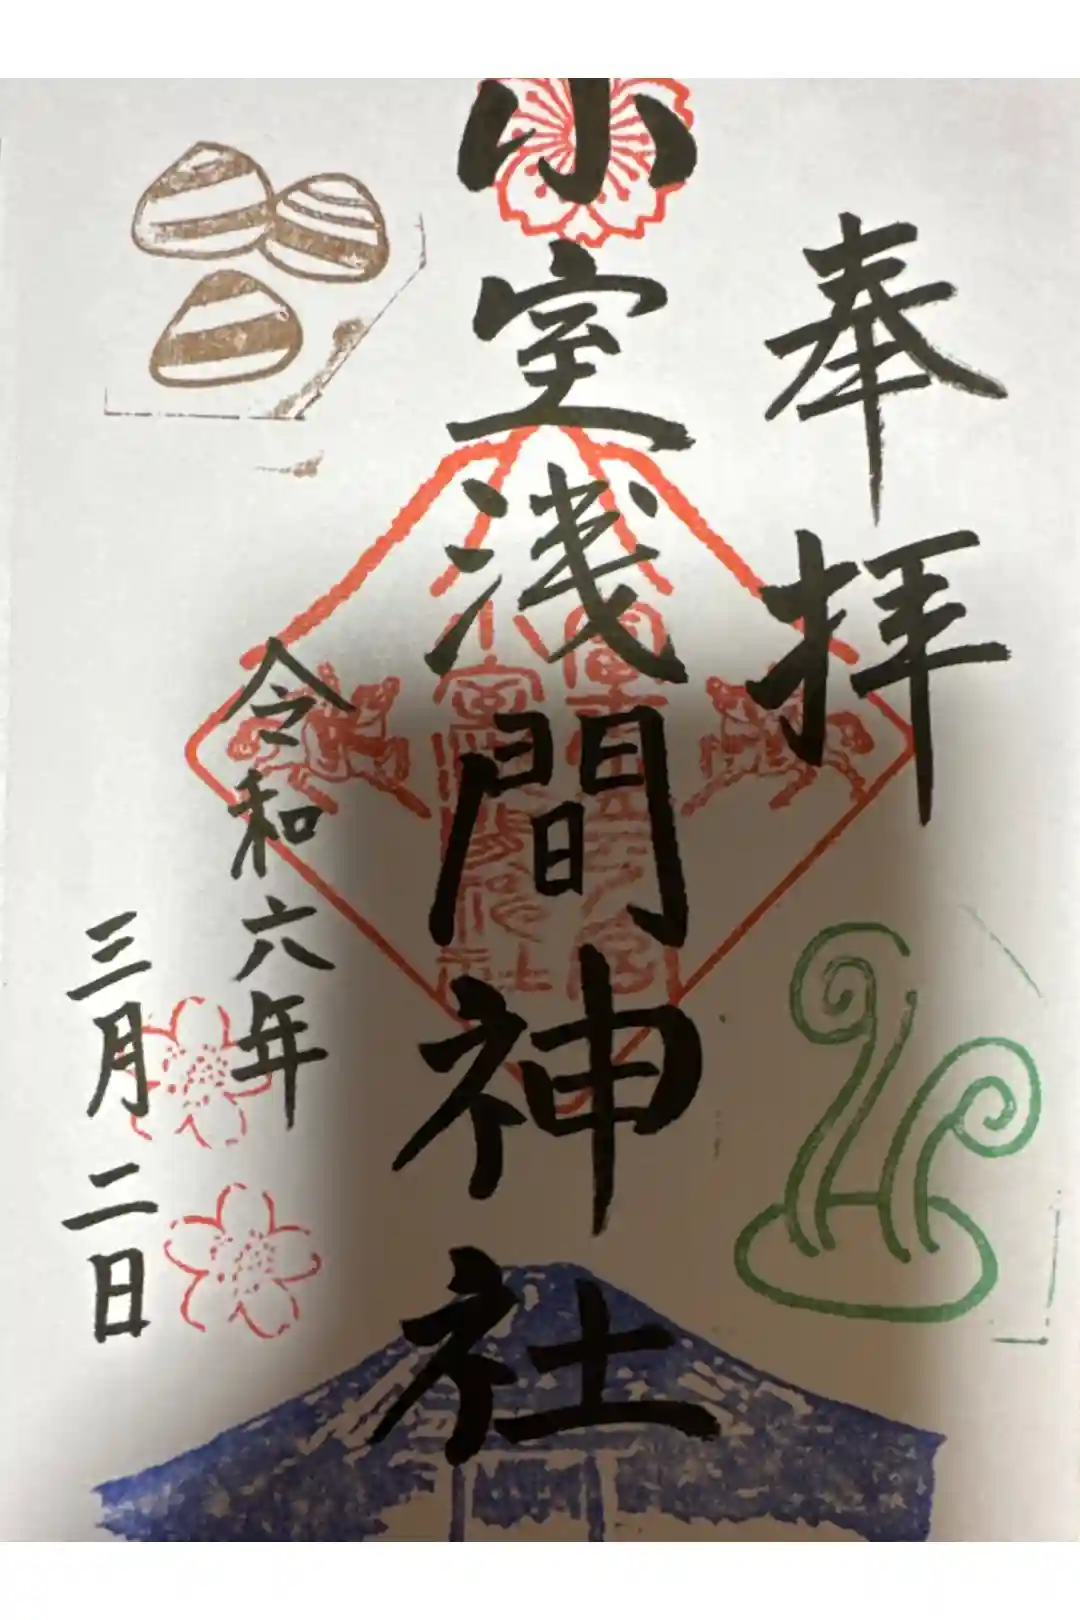 奉拝
小室浅間神社
令和六年
三月二日